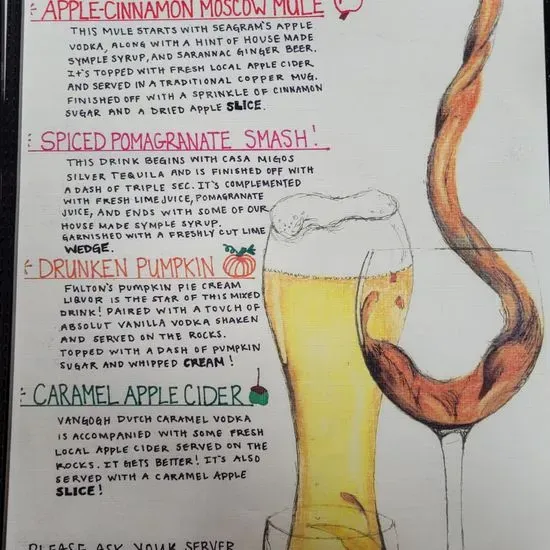 APPLE-CINNAMON MOSCOW MULE
THIS MULE STARTS WITH SEAGRAM'S APPLE
VODKA, ALONG WITH A HINT OF HOUSE MADE
SYMPLE SYRUP, AND SARANNAC GINGER BEER.
IT'S TOPPED WITH FRESH LOCAL APPLE CIDER
AND SERVED IN A TRADITIONAL COPPER MUG.
FINISHED OFF WITH A SPRINKLE OF CINNAMON
SUGAR AND A DRIED APPLE SLICE.
SPICED POMAGRANATE SMASH!
THIS DRINK BEGINS WITH CASA MIGOS
SILVER TEQUILA AND IS FINISHED OFF WITH
A DASH OF TRIPLE SEC. IT'S COMPLEMENTED
WITH FRESH LIME JUICE, POMAGRANATE
JUICE, AND ENDS WITH SOME OF OUR
HOUSE MADE SYMPLE SYRUP.
GARNISHED WITH A FRESHLY CUT LIME
WEDGE.
DRUNKEN PUMPKIN
FULTON'S PUMPKIN PIE CREAM
LIQUOR IS THE STAR OF THIS MIXED
DRINK! PAIRED WITH A TOUCH OF
ABSOLUT VANILLA VODKA SHAKEN
AND SERVED ON THE ROCKS.
TOPPED WITH A DASH OF PUMPKIN
SUGAR AND WHIPPED CREAM!
CARAMEL APPLE CIDER
VANGOGH DUTCH CARAMEL VODKA
IS ACCOMPANIED WITH SOME FRESH
LOCAL APPLE CIDER SERVED ON THE
ROCKS. IT GETS BETTER! IT'S ALSO
SERVED WITH A CARAMEL APPLE
SLICE!
PLEASE ASK YOUR SERVER